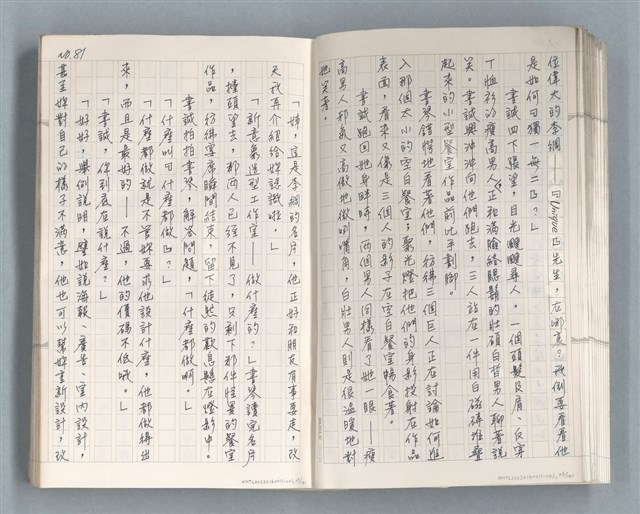 位偉大的李綱──『Unique』先生，在哪裏？我倒要看看他
是如何『獨一無二』？」
書誠四下張望，目光飕飕尋人。一個頭髮及肩、反穿
丁恤衫的瘦高男人，正和滿臉絡腮鬍的壯碩白皙男人聊著說
笑。書誠興沖沖向他們跑去，三人站在一件用白磁磚堆疊
起來的小型餐室作品前比手劃腳。
書琴錯愕地看著他們，彷彿三個巨人正在討論如何進
入那個太小的空白餐室；聚光燈把他們的身影投射在作品
表面，看來又像是三個人的影子在空白餐室暢食著。
書誠跑回她身畔時，兩個男人同樣看了她一眼──瘦
高男人邪氣又高傲地撇咧嘴角，白壯男人則是很溫暖地對
她笑著。
NO.81
「姊，這是李綱的名片，他正好和朋友有事要走，改
天我再介紹給妳認識啦。」
「新意象造型工作室──做什麼的？」書琴讀完名片
，擡頭望去，那兩人已經不見了，只剩下那件怪異的餐室
作品，彷彿宴席瞬間結束，留下徒然的歎息懸在燈影中。
書誠拍拍書琴，解答問題，「什麼都做啊。」
「什麼叫『什麼都做』？」
「什麼都做就是不管妳要求他設計什麼，他都做得出
來，而且是最好的──不過，他的價碼不低哦。」
「書誠，你到底在說什麼？」
「好好，舉例說明，譬如說海報、廣告、室內設計，
甚至妳對自己的樣子不滿意，他也可以幫妳重新設計，改